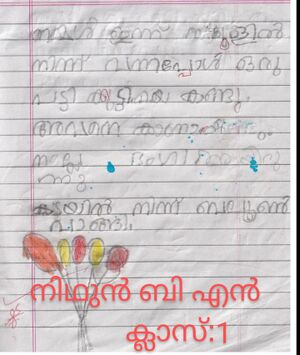 ഞങ്ങൾ ഇന്ന് സ്കൂളിൽ
നിന്ന് വന്നപ്പോൾ ഒരു
പട്ടി കുട്ടിയെ കണ്ടു.
അവനെ കാണാൻ
നല്ല ഭംഗി
ന്നു
കടയിൽ നിന്ന് ബലൂൺ
വാങ്ങി.
നിഥുൻ ബി എൻ
ക്ലാസ്:1